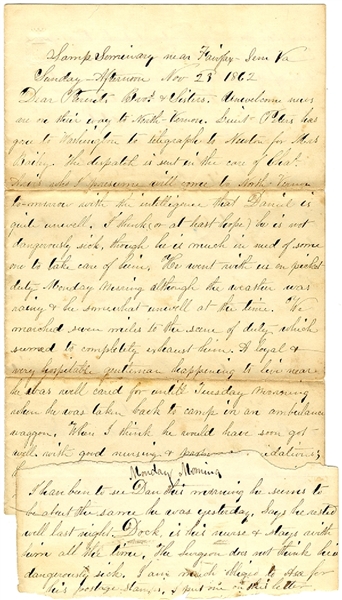 Camp Seminary near Fairfax Sem Va
Sunday Afternoon Nov 23 1862
Dear Parents Bro's & Sisters. Unwelcome news
are on their way to North Vernon. Lieut Peters has
gone to Washington to telegraph to Newton for Mrs
The dispatch is sent in the care of Chas.
who I presume will come to North Vernon
to-morrow with the intelligence that Daniel is
quite unwell. I think (or at least hope) he is not
dangerously sick, though he is much in need of some
one to take care of him. He went with us on picket
duty Monday morning although the weather was
rainy & he somewhat unwell at the time. We
marched seven miles to the scene of duty which
seemed to completely exhaust him. A loyal &
very hospitable gentleman happening to live near
he was well cared for until Tuesday morning
when he was taken back to camp in an ambulance
waggon. When I think he would have soon got
well with good nursing &
Monday Morning
I have been to see Dan this morning he seems to
be about the same he was yesterday. Says he rested
well last night. Dock. is his nurse & stays with
him all the time. The Surgeon does not think he is
dangerously sick. I am much obliged to Asa for
his postage stamps, & put one on this letter